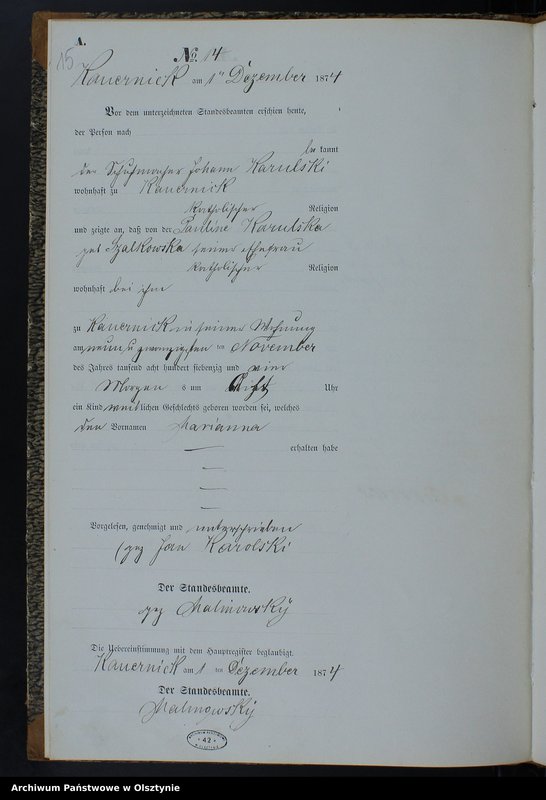 A.
15
No. 14
Kauernick am 1ten Dezember 1874
Vor dem unterzeichneten Standesbeamten erschien heute,
der Person nach
be kannt
der Schuhmacher Johann Karulski
wohnhaft zu Kauernick
katholischer Religion
und zeigte an, daß von der Pauline Karulska
geb Szalkowska seiner Ehefrau
katholischer Religion
wohnhaft bei ihm
zu Kauernick in seiner Wohnung
am neun u zwanzigsten ten November
des Jahres tausend acht hundert siebenzig und vier
Morgen s um Acht Uhr
ein Kind weiblichen Geschlechts geboren worden sei, welches
den Vornamen Marianna
erhalten habe
Vorgelesen, genehmigt und unterschrieben
(gez Jan Karolski
Der Standesbeamte.
gez Malinowsky
Die Uebereinstimmung mit dem Hauptregister beglaubigt.
Kauernick am 1 ten Dezember 1874
Der Standesbeamte.
Malinowsky
42
Archiwum Państwowe w Olsztynie